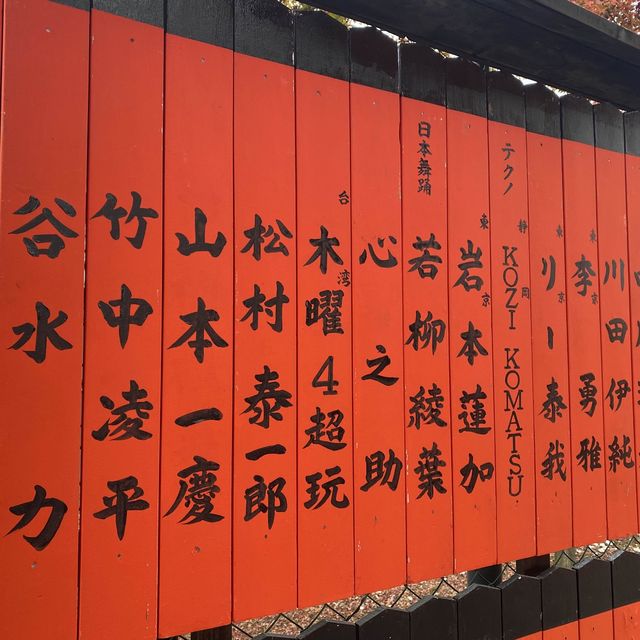 川田伊純
東京
李勇雅
東京
リー泰我
テクノ
静岡
KOZI KOMATSU
東京
岩本蓮加
日本舞踊
若柳綾葉
心之助
台湾
木曜4超玩
松村泰一郎
山本一慶
竹中凌平
谷水力